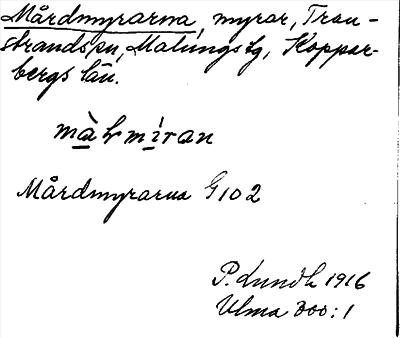 Mårdmyrarna, myrar, Tran-
strands sn, Malungs tg, Koppar-
bergs län.
Mårdmyrarna G 102
P. Lundh 1916
Ulma 300:1